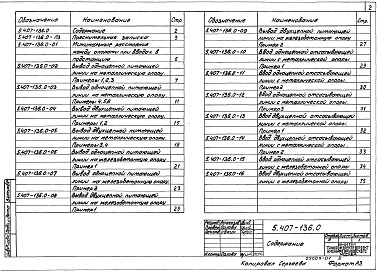 2
Обозначение Наименование Стр.
5.407-136.0 Содержание 2
5.407-136.0-ПЗ Пояснительная записка 3
5.407-136.0-01 Минимальные расстояния
между опоры при вводах в
подстанцию 6
5.407-136.0-02 Вывод одноцепной питающей
линии на металлическую опору.
Примеры 1,2,3 7
5.407-136.0-03 Вывод одноцепной питающей
линии на металлическую опору.
Примеры 4,5,6 11
5.407-136.0-04 Вывод двухцепной питающей
линии на металлическую опору.
Примеры 1,2 15
5.407-136.0-05 Вывод двухцепной питающей
линии на металлическую опору.
Примеры 3,4 18
5.407-136.0-06 Вывод одноцепной питающей
линии на железобетонную опору.
Пример 1 21
5.407-136.0-07 Вывод одноцепной питающей
линии на железобетонную опору.
Пример 2 23
5.407-136.0-08 Вывод двухцепной питающей
линии на железобетонную опору.
Пример 1 25
Обозначение Наименование Стр.
5.407-136.0-09 Вывод двухцепной питающей
линии на железобетонную опору.
Пример 2 27
5.407-136.0-10 Ввод одноцепной отсасывающей
линии с металлической опоры.
Пример 1 29
5.407-136.0-11 Ввод одноцепной отсасывающей
линии с металлической опоры.
Пример 2 30
5.407-136.0-12 Ввод одноцепной отсасывающей
линии с металлической опоры.
Пример 3 31
5.407-136.0-13 Ввод двухцепной отсасывающей
линии с металлической опоры.
Пример 1 32
5.407-136.0-14 Ввод двухцепной отсасывающей
линии с металлической опоры.
Пример 2 33
5.407-136.0-15 Ввод одноцепной отсасывающей
линии с железобетонной опоры 34
5.407-136.0-16 Ввод двухцепной отсасывающей
линии с железобетонной опоры 35
5.407-136.0
Содержание
Копировал Сергеева Формат А3